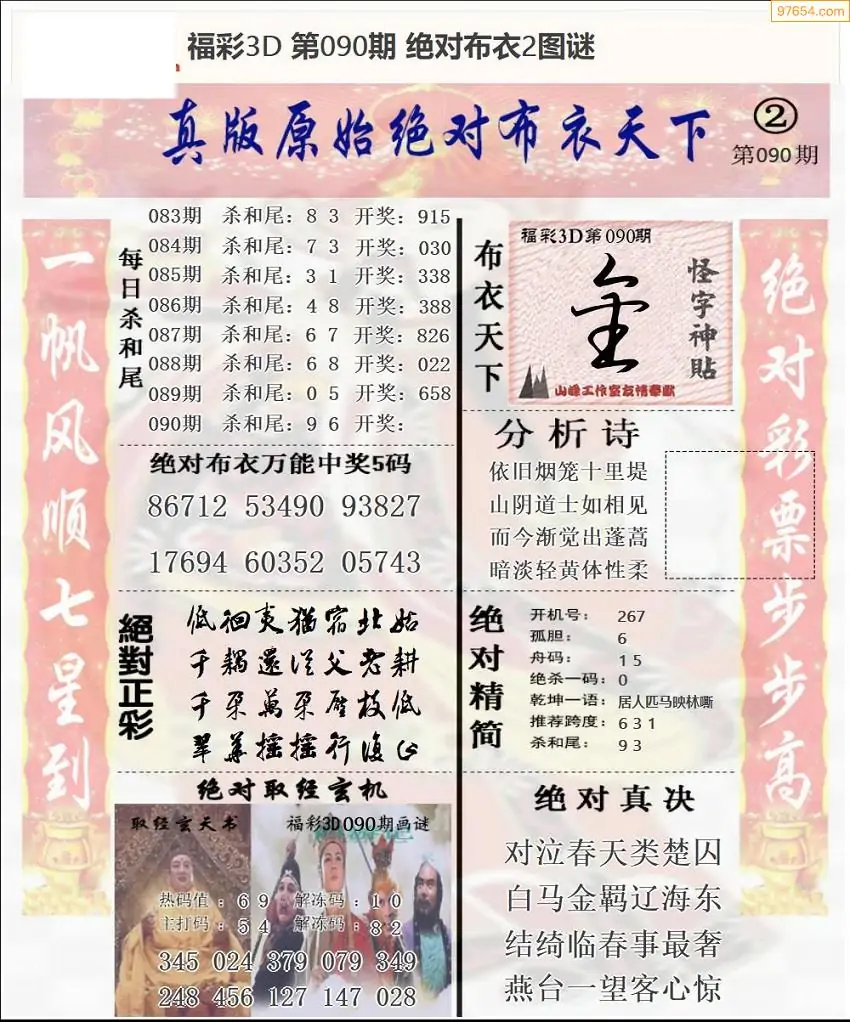 97654.com
福彩3D 第090期 绝对布衣2图谜
真版原始绝对布衣天下
②
第090期
一帆风顺七星到
每日杀和尾
083期 杀和尾：8 3 开奖：915
084期 杀和尾：7 3 开奖：030
085期 杀和尾：3 1 开奖：338
086期 杀和尾：4 8 开奖：388
087期 杀和尾：6 7 开奖：826
088期 杀和尾：6 8 开奖：022
089期 杀和尾：0 5 开奖：658
090期 杀和尾：9 6 开奖：
绝对布衣万能中奖5码
86712 53490 93827
17694 60352 05743
絕對正彩
低徊夷猶宿北姑
千耦還從父老耕
千朵萬朵壓枝低
翠華摇摇行復止
绝对取经玄机
取经玄天书
福彩3D090期画谜
热码值：6 9 解冻码：1 0
主打码：5 4 解冻码：8 2
345 024 379 079 349
248 456 127 147 028
布衣天下
福彩3D第090期
怪字神貼
山峰工作室友情奉献
分析诗
依旧烟笼十里堤
山阴道士如相见
而今渐觉出蓬蒿
暗淡轻黄体性柔
绝对精简
开机号： 267
孤胆： 6
舟码： 1 5
绝杀一码：0
乾坤一语：居人匹马映林嘶
推荐跨度：6 3 1
杀和尾： 9 3
绝对真决
对泣春天类楚囚
白马金羁辽海东
结绮临春事最奢
燕台一望客心惊
绝对彩票步步高